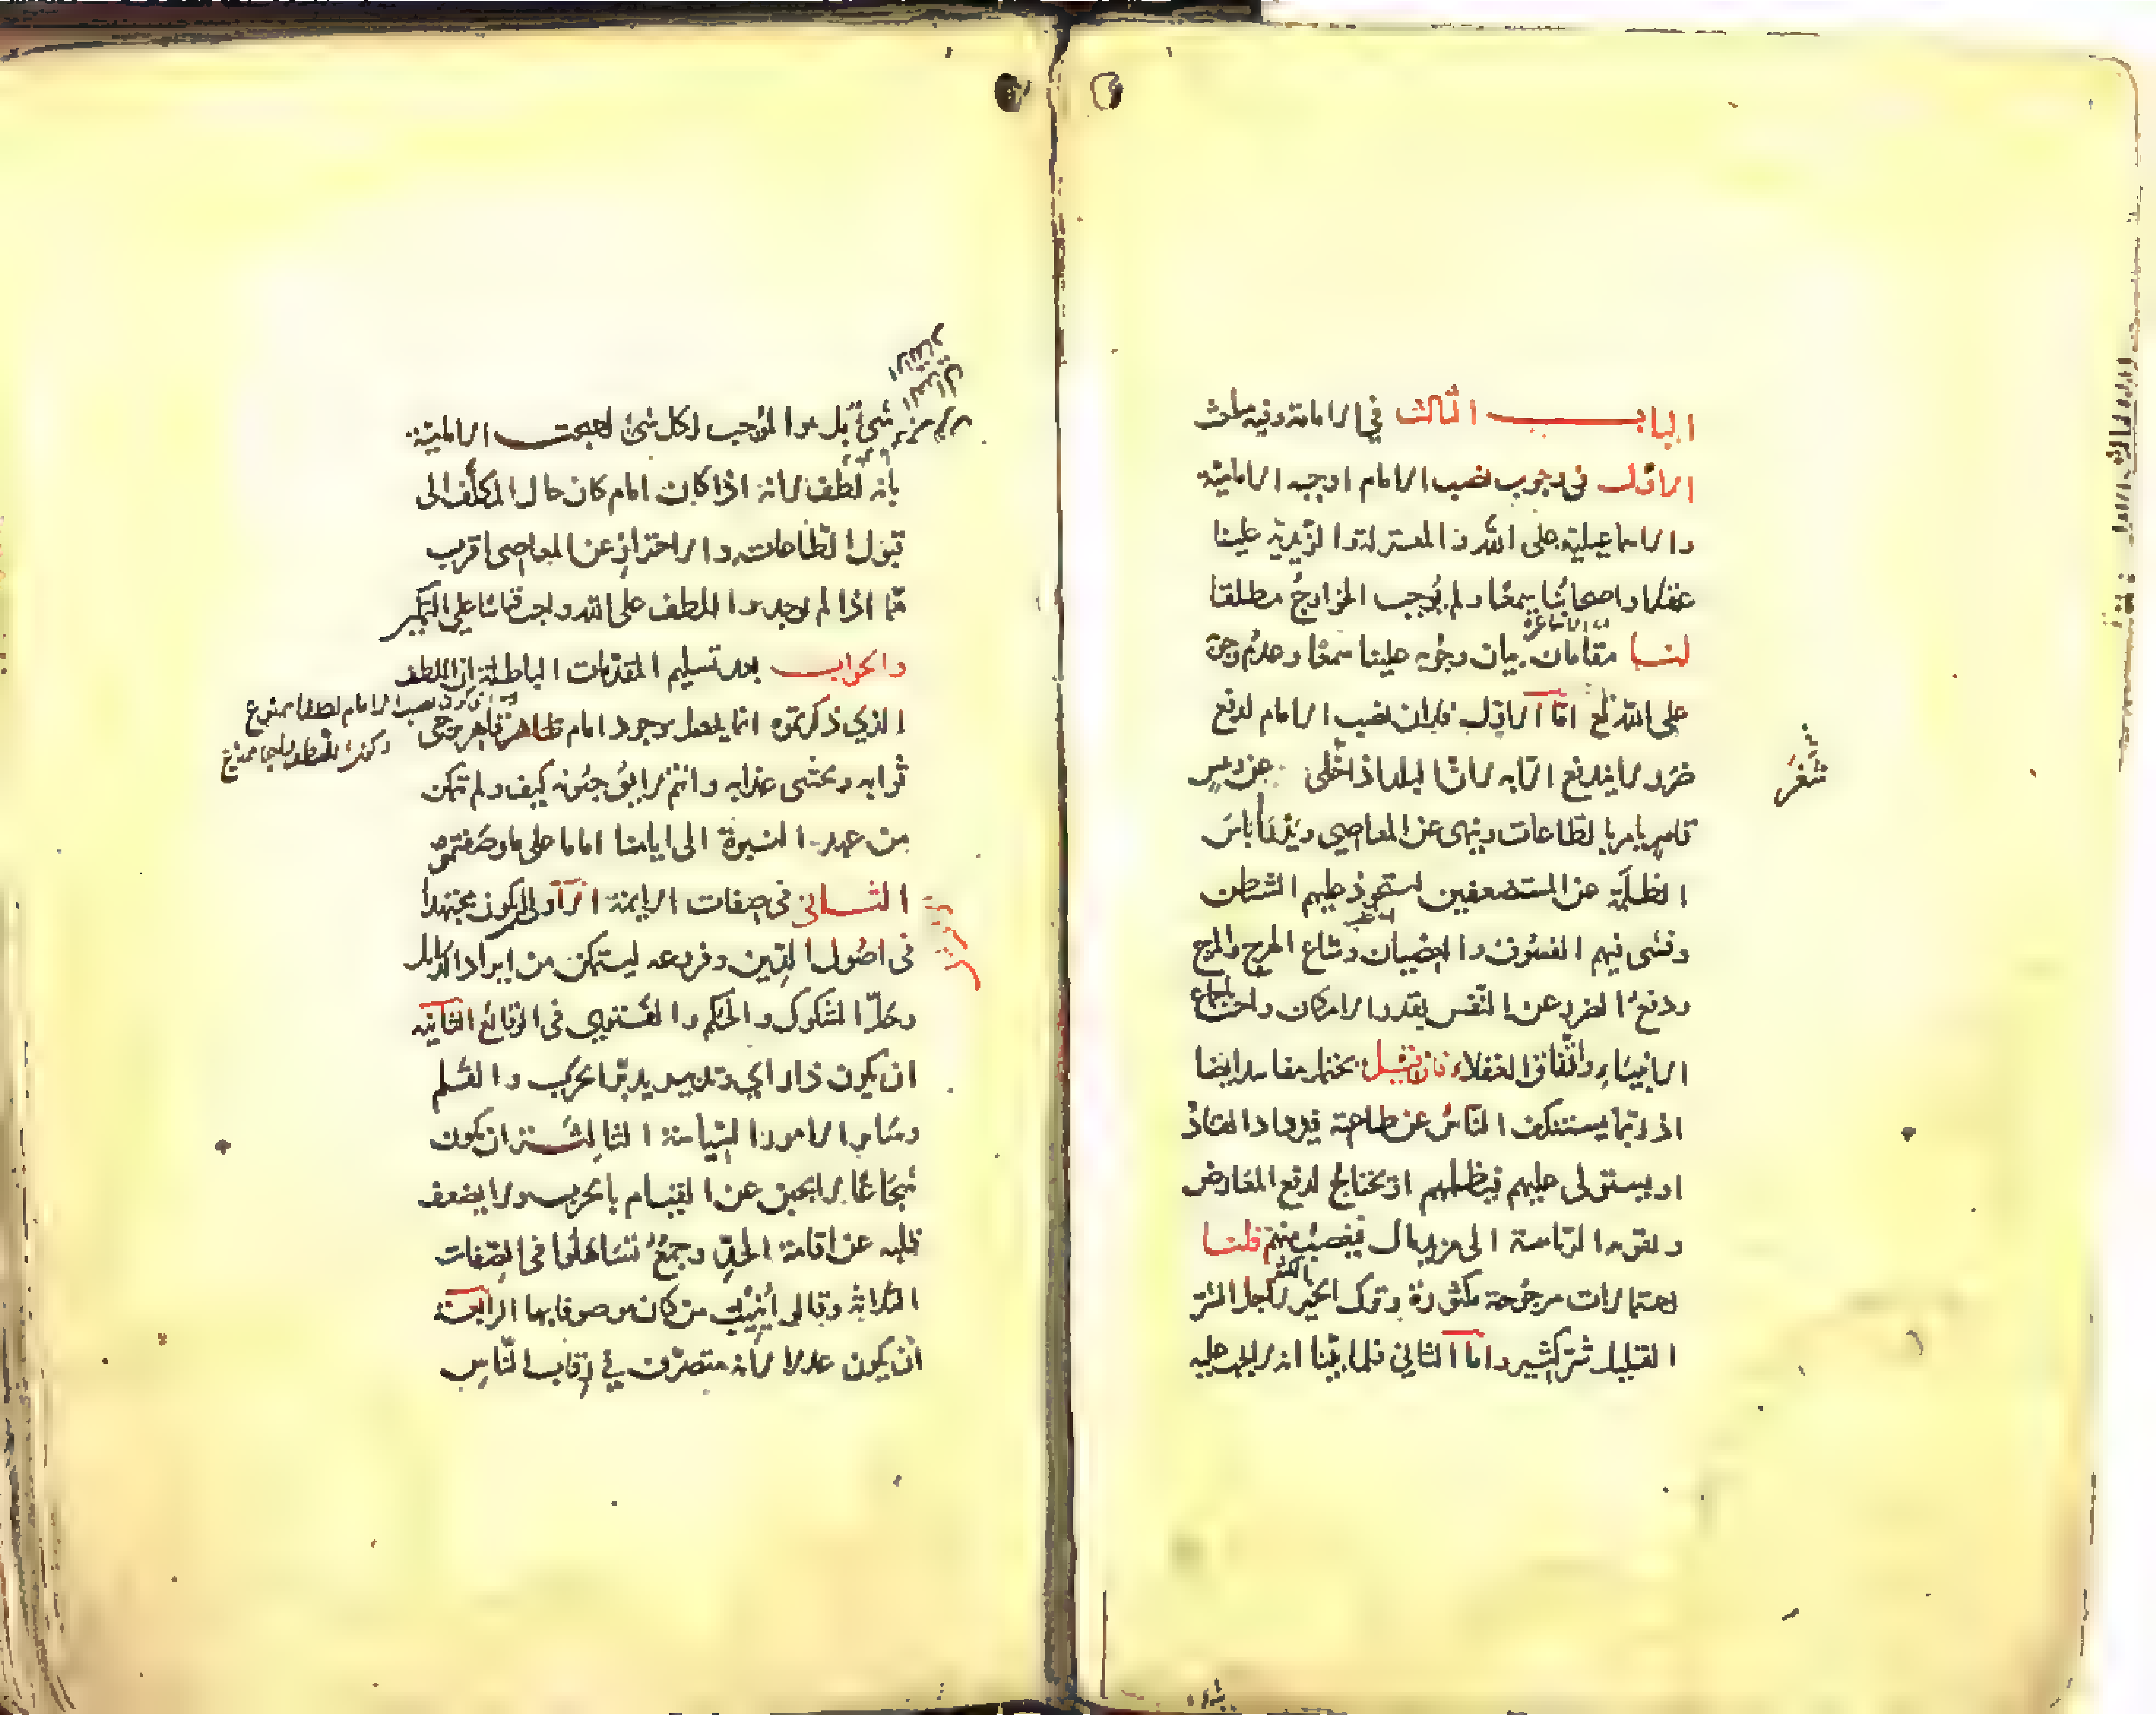 الباب الثالث في الامامة وفيه مباحث
الاول في وجوب نصب الامام اوجبه الامامية
والاسماعيلية على الله والمعتزلة والزيدية علينا
عقلا واصحابنا سمعا ولم يوجب الخوارج مطلقا
اى الاشاعرة
لنا مقامان بيان وجوبه علينا سمعا وعدم وجوبه
على الله تع اما الاول فلان نصب الامام لدفع
ضرر لا يندفع الا به لان البلد اذا خلى عن رئيس
شغر
قاهر يامر بالطاعات وينهى عن المعاصي ويدرأ باس
الظلمة عن المستضعفين استحوذ عليهم الشيطن
وفشى فيهم الفسوق والعصيان وشاع الهرج والمرج
ودفع الضرر عن النفس بقدر الامكان واجب باجماع
الانبياء واتفاق العقلاء فان قيل يحتمل مفاسد ايضا
اذ ربما يستنكف الناس عن طاعته فيزداد الفساد
او يستولى عليهم فيظلمهم او يحتاج لدفع المعارض
وتقوية الرئاسة الى مزيد مال فيغصب منهم قلنا
احتمالات مرجوحة مكثورة وترك الخير الكثير لاجل الشر
القليل شر كثير واما الثاني فلما بينا انه لا يجب عليه
شئ بل هو الموجب لكل شئ احتجت الامامية
بانه لطف لانه اذا كان امام كان حال المكلف الى
قبول الطاعات والاحتراز عن المعاصي اقرب
مما اذا لم يوجد واللطف على الله واجب قياسا على التمكين
والجواب بعد تسليم المقدمات الباطلة ان اللطف
الذي ذكرتموه انما يحصل بوجود امام ظاهر قاهر يرجى
ثوابه ويخشى عقابه وانتم لا توجبونه كيف ولم يتمكن
من عهد النبوة الى ايامنا اماما على ما وصفتموه
الثاني في صفات الايمة الاولى ان يكون مجتهدا
في اصول الدين وفروعه ليتمكن من ايراد الدلايل
وحل الشكوك والحكم والفتوى في الوقائع الثانية
ان يكون ذا راي وتدبير يدبر الحرب والسلم
وسائر الامور السياسية الثالثة ان يكون
شجاعا لا يجبن عن القيام بالحرب ولا يضعف
قلبه عن اقامة الحد وجمع تساهلوا في الصفات
الثلاثة وقالوا ينيب من كان موصوفا بها الرابعة
ان يكون عدلا لانه متصرف في رقاب الناس